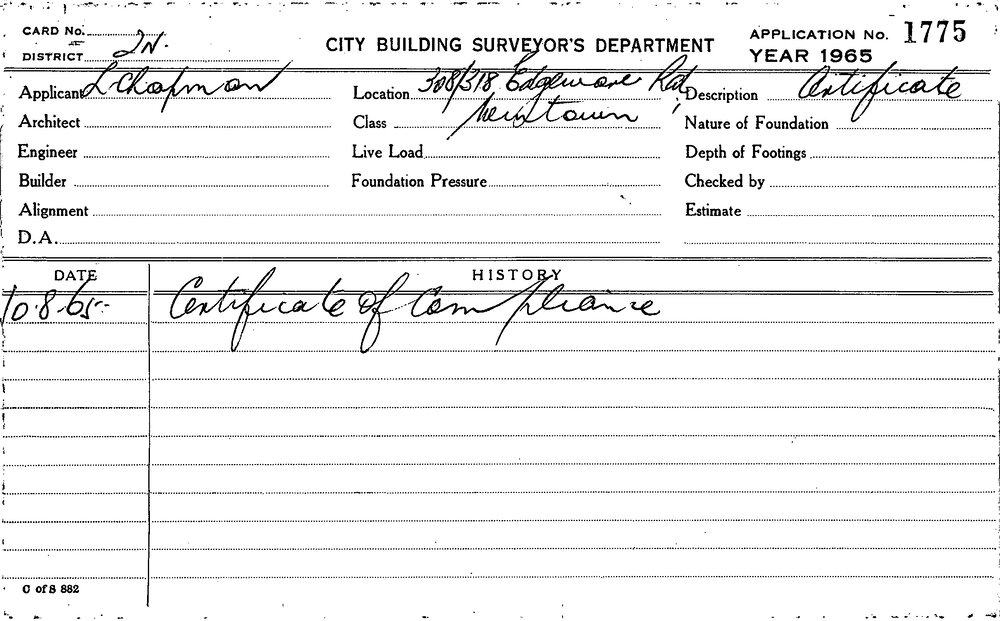 CARD No.
DISTRICT 2N.
CITY BUILDING SURVEYOR'S DEPARTMENT
APPLICATION No. 1775
YEAR 1965
Applicant L Chapman
Location 308/318 Edgeware Rd,
Newtown
Description Certificate
Architect
Class
Nature of Foundation
Engineer
Live Load
Depth of Footings
Builder
Foundation Pressure
Checked by
Alignment
Estimate
D.A.
DATE
HISTORY
10.8.65 Certificate of Compliance
C of S 882